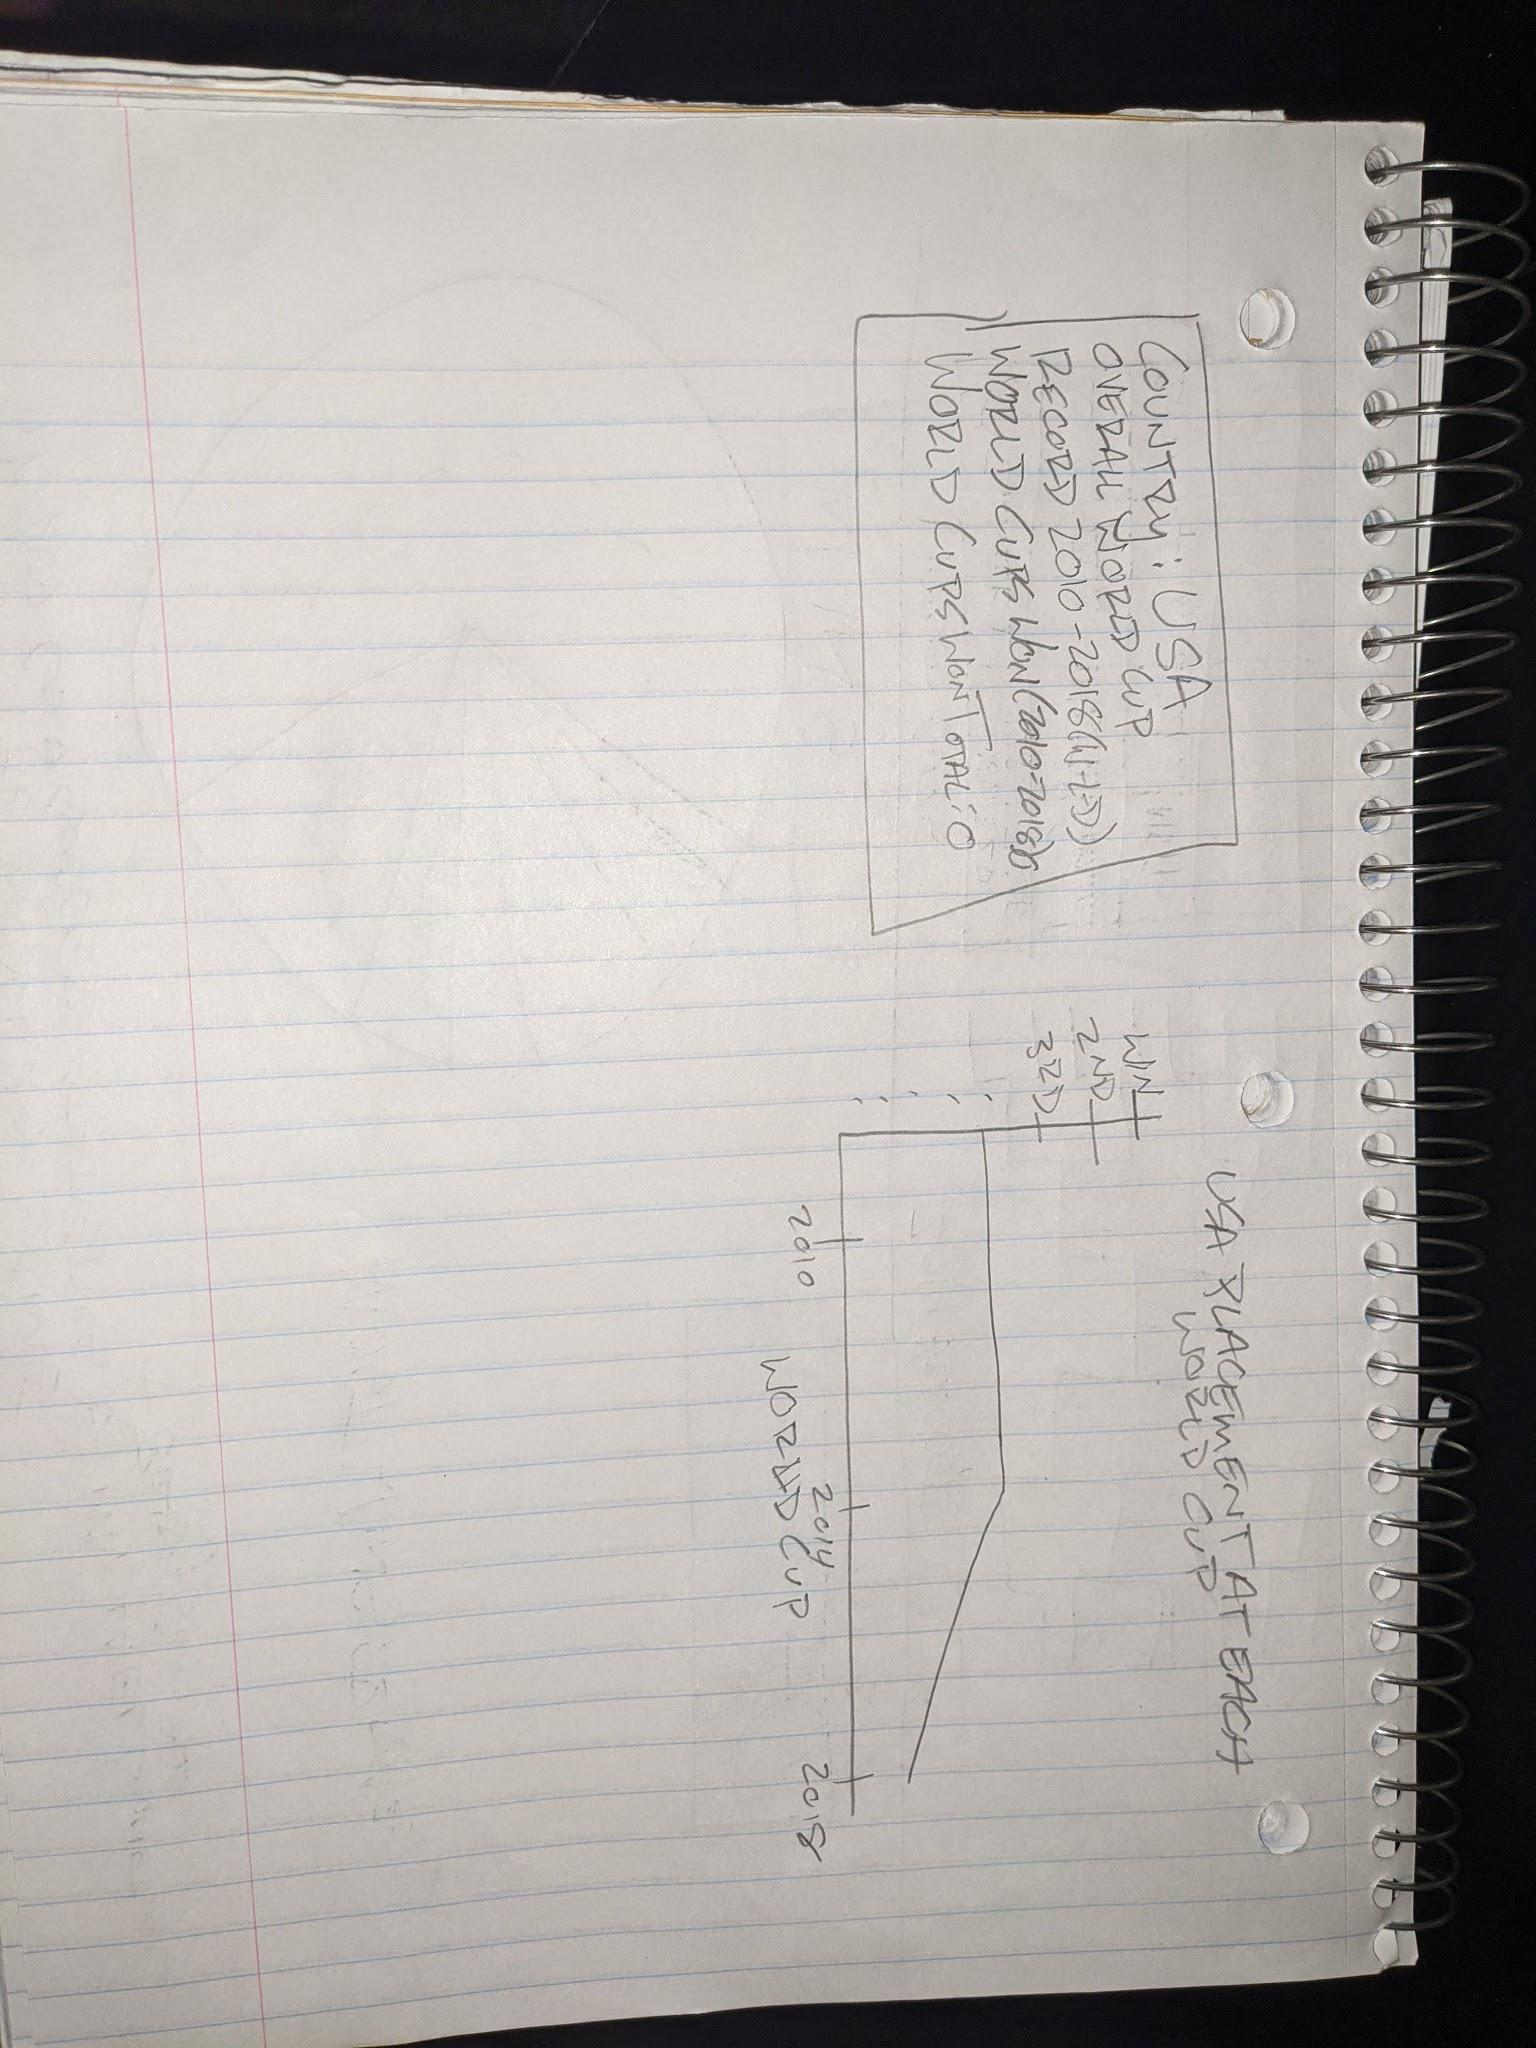 COUNTRY: USA
OVERALL WORLD CUP
RECORD 2010-2018(W-L-D)
WORLD CUPS WON(2010-2018)
WORLD CUPS WON TOTAL: 0
USA PLACEMENT AT EACH
WORLD CUP
WIN
2ND
3RD
2010
2014
2018
WORLD CUP